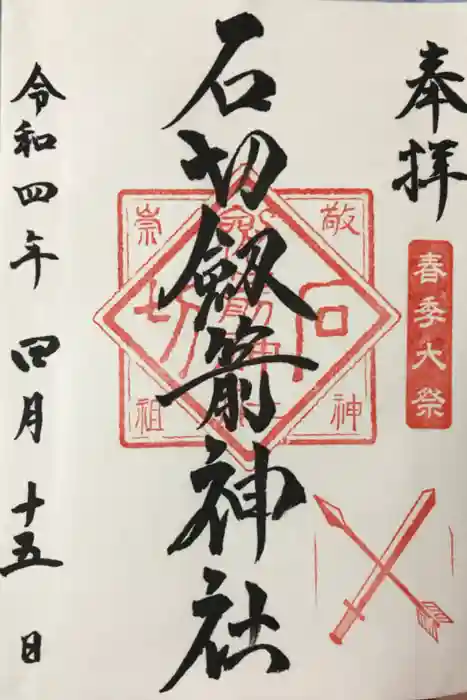 奉拝
春季大祭
石切劔箭神社
敬神
崇祖
石切
令和四年 四月 十五 日